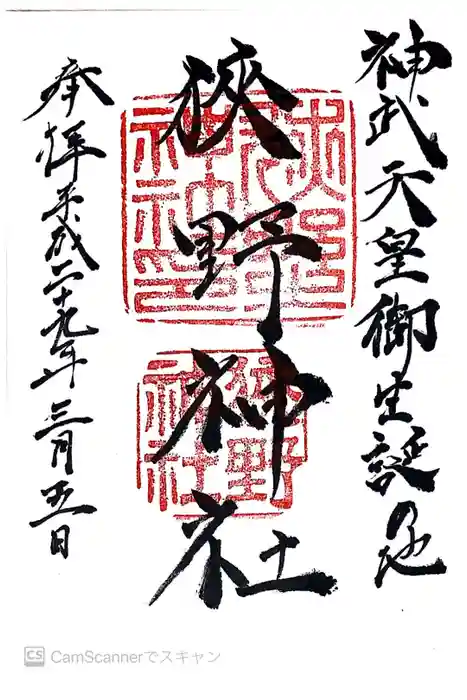 神武天皇御生誕の地
狹野神社
奉拝平成二十九年三月五日
狭野
神社
CS CamScannerでスキャン